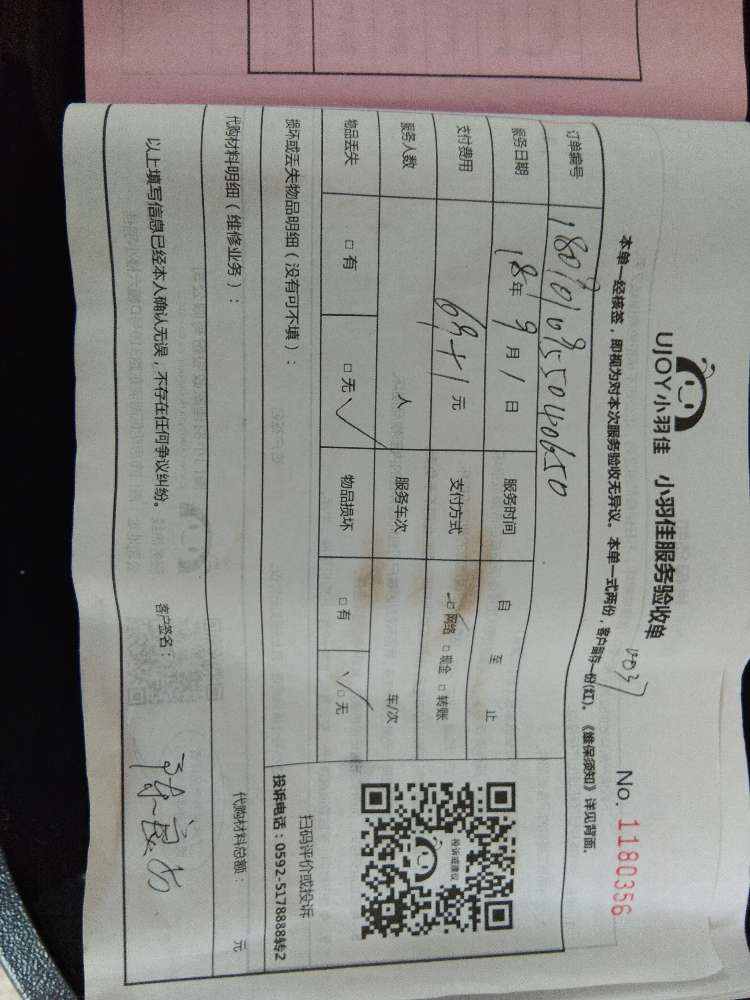 UJOY小羽佳 小羽佳服务验收单
No. 1180356
本单一经核签，即视为对本次服务验收无异议。本单一式两份，客户留存一份(红)。《维保须知》详见背面。
订单编号
服务日期 18年 9月 1日 服务时间 自 至 止
支付费用 元 支付方式 □网络 □现金 □转账
服务人数 人 服务车次 车/次
物品丢失 □有 □无 物品损坏 □有 □无
损坏或丢失物品明细（没有可不填）：
代购材料明细（维修业务）：
代购材料总额： 元
以上填写信息已经本人确认无误，不存在任何争议纠纷。 客户签名：
投诉或建议
扫码评价或投诉
投诉电话：0592-5178888转2